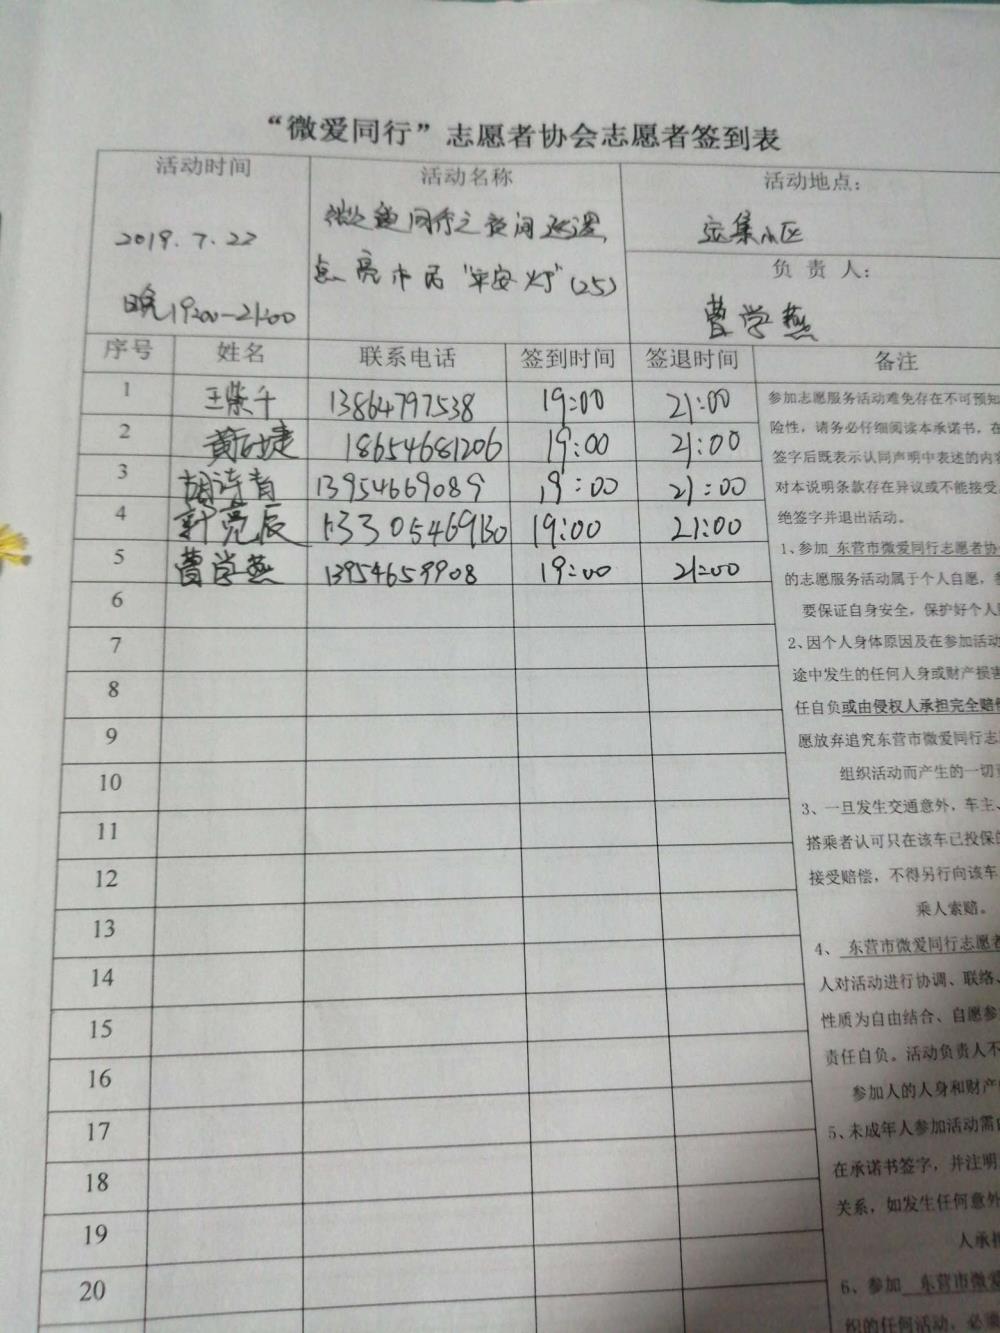 “微爱同行”志愿者协会志愿者签到表
活动时间
2019.7.22
晚19:00-21:00
活动名称
微爱同行之夜间巡逻
点亮市民“平安灯”(25)
活动地点：
安集小区
负责人：
曹学燕
序号 姓名 联系电话 签到时间 签退时间 备注
1 王紫千 13864797538 19:00 21:00
2 18654681206 19:00 21:00
3 胡诗青 13954669089 19:00 21:00
4 亮辰 13305469130 19:00 21:00
5 曹学燕 13954659908 19:00 21:00
6
7
8
9
10
11
12
13
14
15
16
17
18
19
20
参加志愿服务活动难免存在不可预知
险性，请务必仔细阅读本承诺书，在
签字后既表示认同声明中表述的内容
对本说明条款存在异议或不能接受，
绝签字并退出活动。
1、参加 东营市微爱同行志愿者协
的志愿服务活动属于个人自愿，参
要保证自身安全，保护好个人
2、因个人身体原因及在参加活动
途中发生的任何人身或财产损害
任自负或由侵权人承担完全赔偿
愿放弃追究东营市微爱同行志
组织活动而产生的一切责
3、一旦发生交通意外，车主、
搭乘者认可只在该车已投保的
接受赔偿，不得另行向该车
乘人索赔。
4、 东营市微爱同行志愿者
人对活动进行协调、联络、
性质为自由结合、自愿参
责任自负。活动负责人不
参加人的人身和财产
5、未成年人参加活动需
在承诺书签字，并注明
关系，如发生任何意外
人承担
6、参加 东营市微爱
织的任何活动，必须